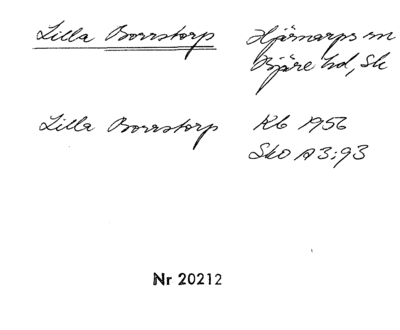 Lilla Borrstorp Hjärnarps sn
Bjäre hd, Sk
Lilla Borrstorp Kb 1956
Sko A3:93
Nr 20212